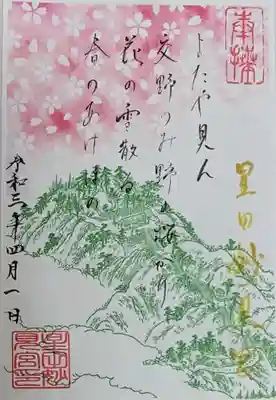 奉拝
またや見ん
交野のみ野の桜かり
花の雪散る
春のあけほの
星田妙見宮
令和三年四月一日
星田妙見宮印